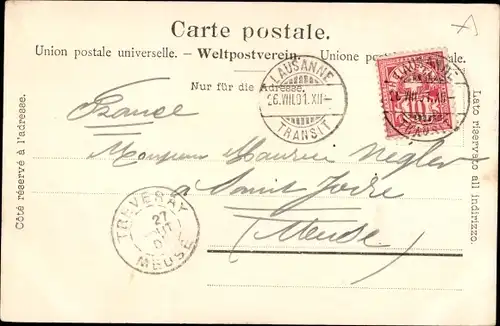 Carte postale.
Union postale universelle. – Weltpostverein. – Unione postale
Nur für die Adresse.
LAUSANNE
26.VIII.01.XII
TRANSIT
LAUSANNE
10
France
Monsieur Maurice Négler
à Saint Joire
(Meuse)
TRÉVERAY
27
MEUSE
Côté réservé à l'adresse.
Lato riservato all indirizzo.